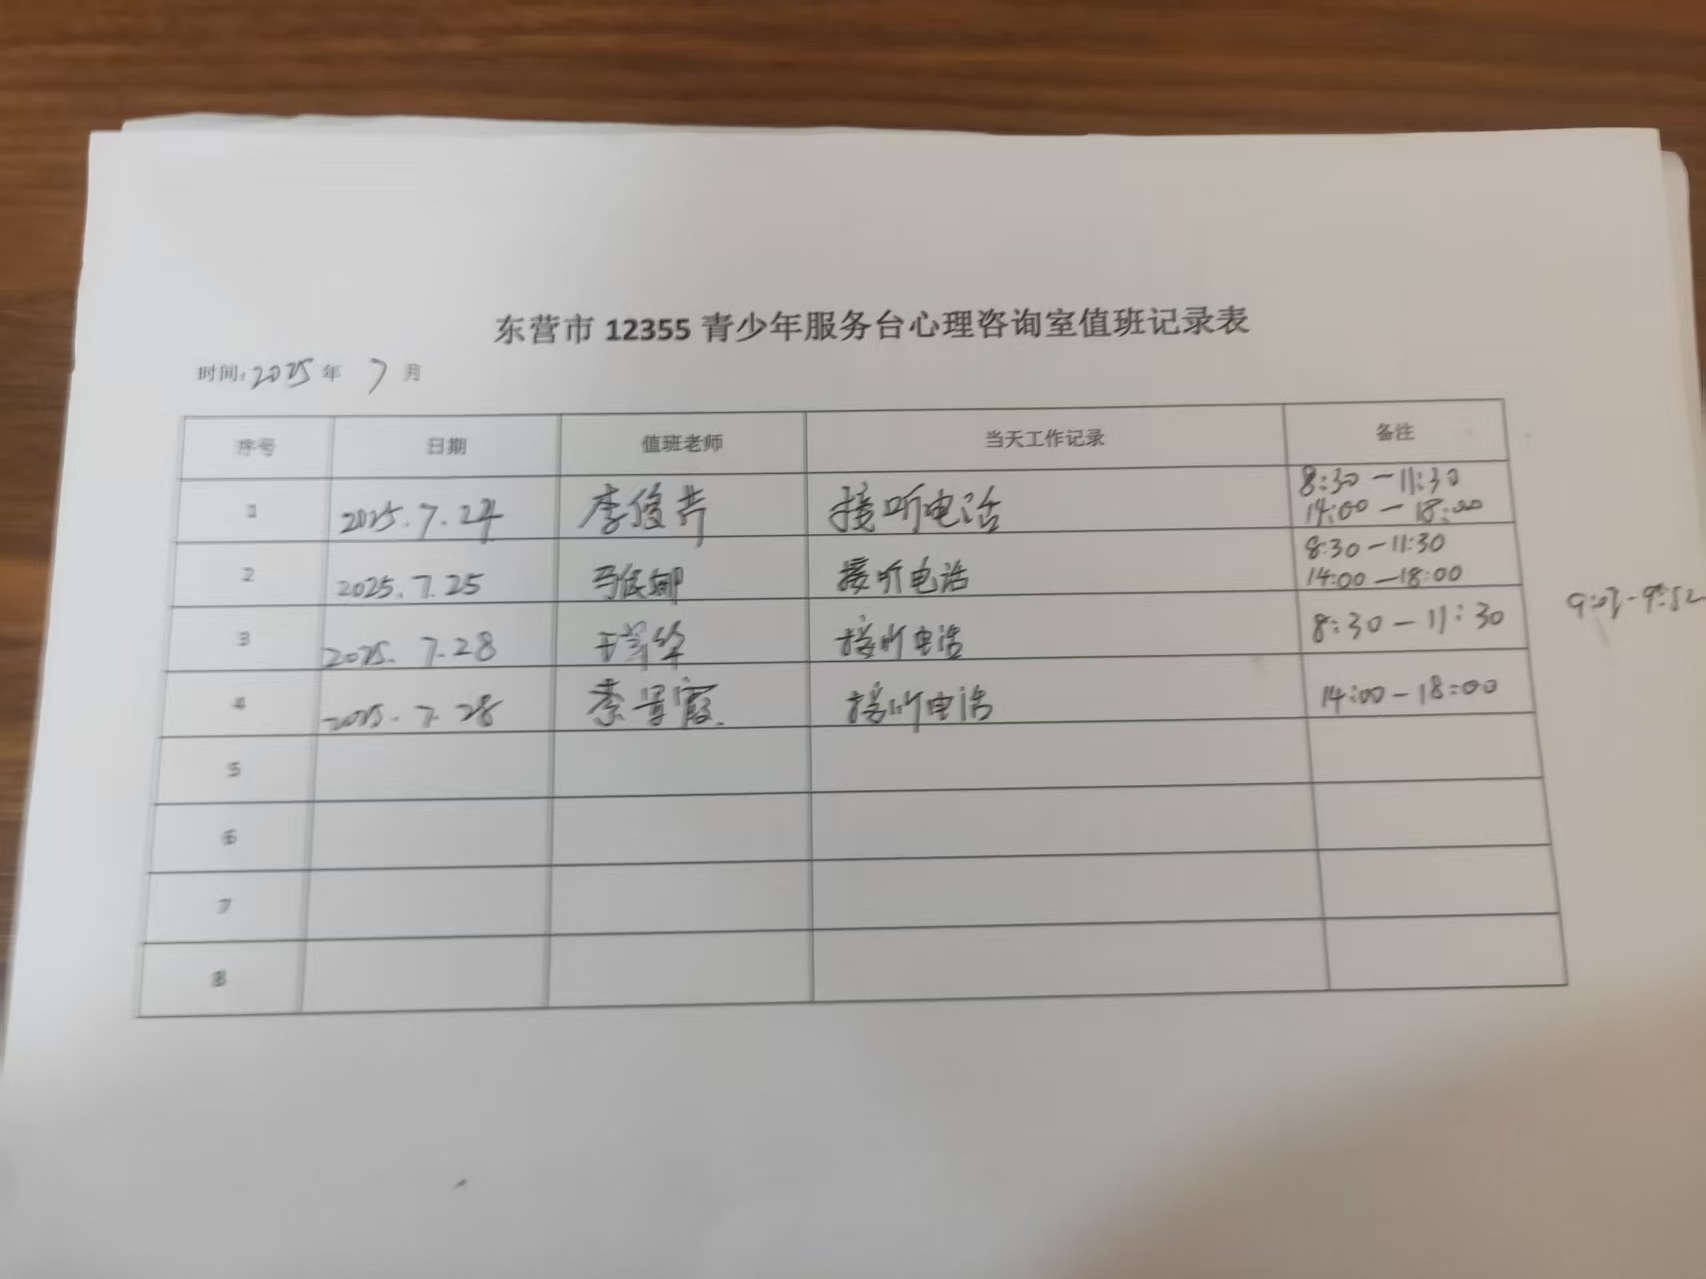 东营市 12355 青少年服务台心理咨询室值班记录表
时间：2025 年 7 月
序号 日期 值班老师 当天工作记录 备注
1 2025.7.24 李俊芳 接听电话 8:30－11:30
14:00－18:00
2 2025.7.25 接听电话 8:30－11:30
14:00－18:00
3 2025.7.28 接听电话 8:30－11:30
4 2025.7.28 李景霞 接听电话 14:00－18:00
5
6
7
8